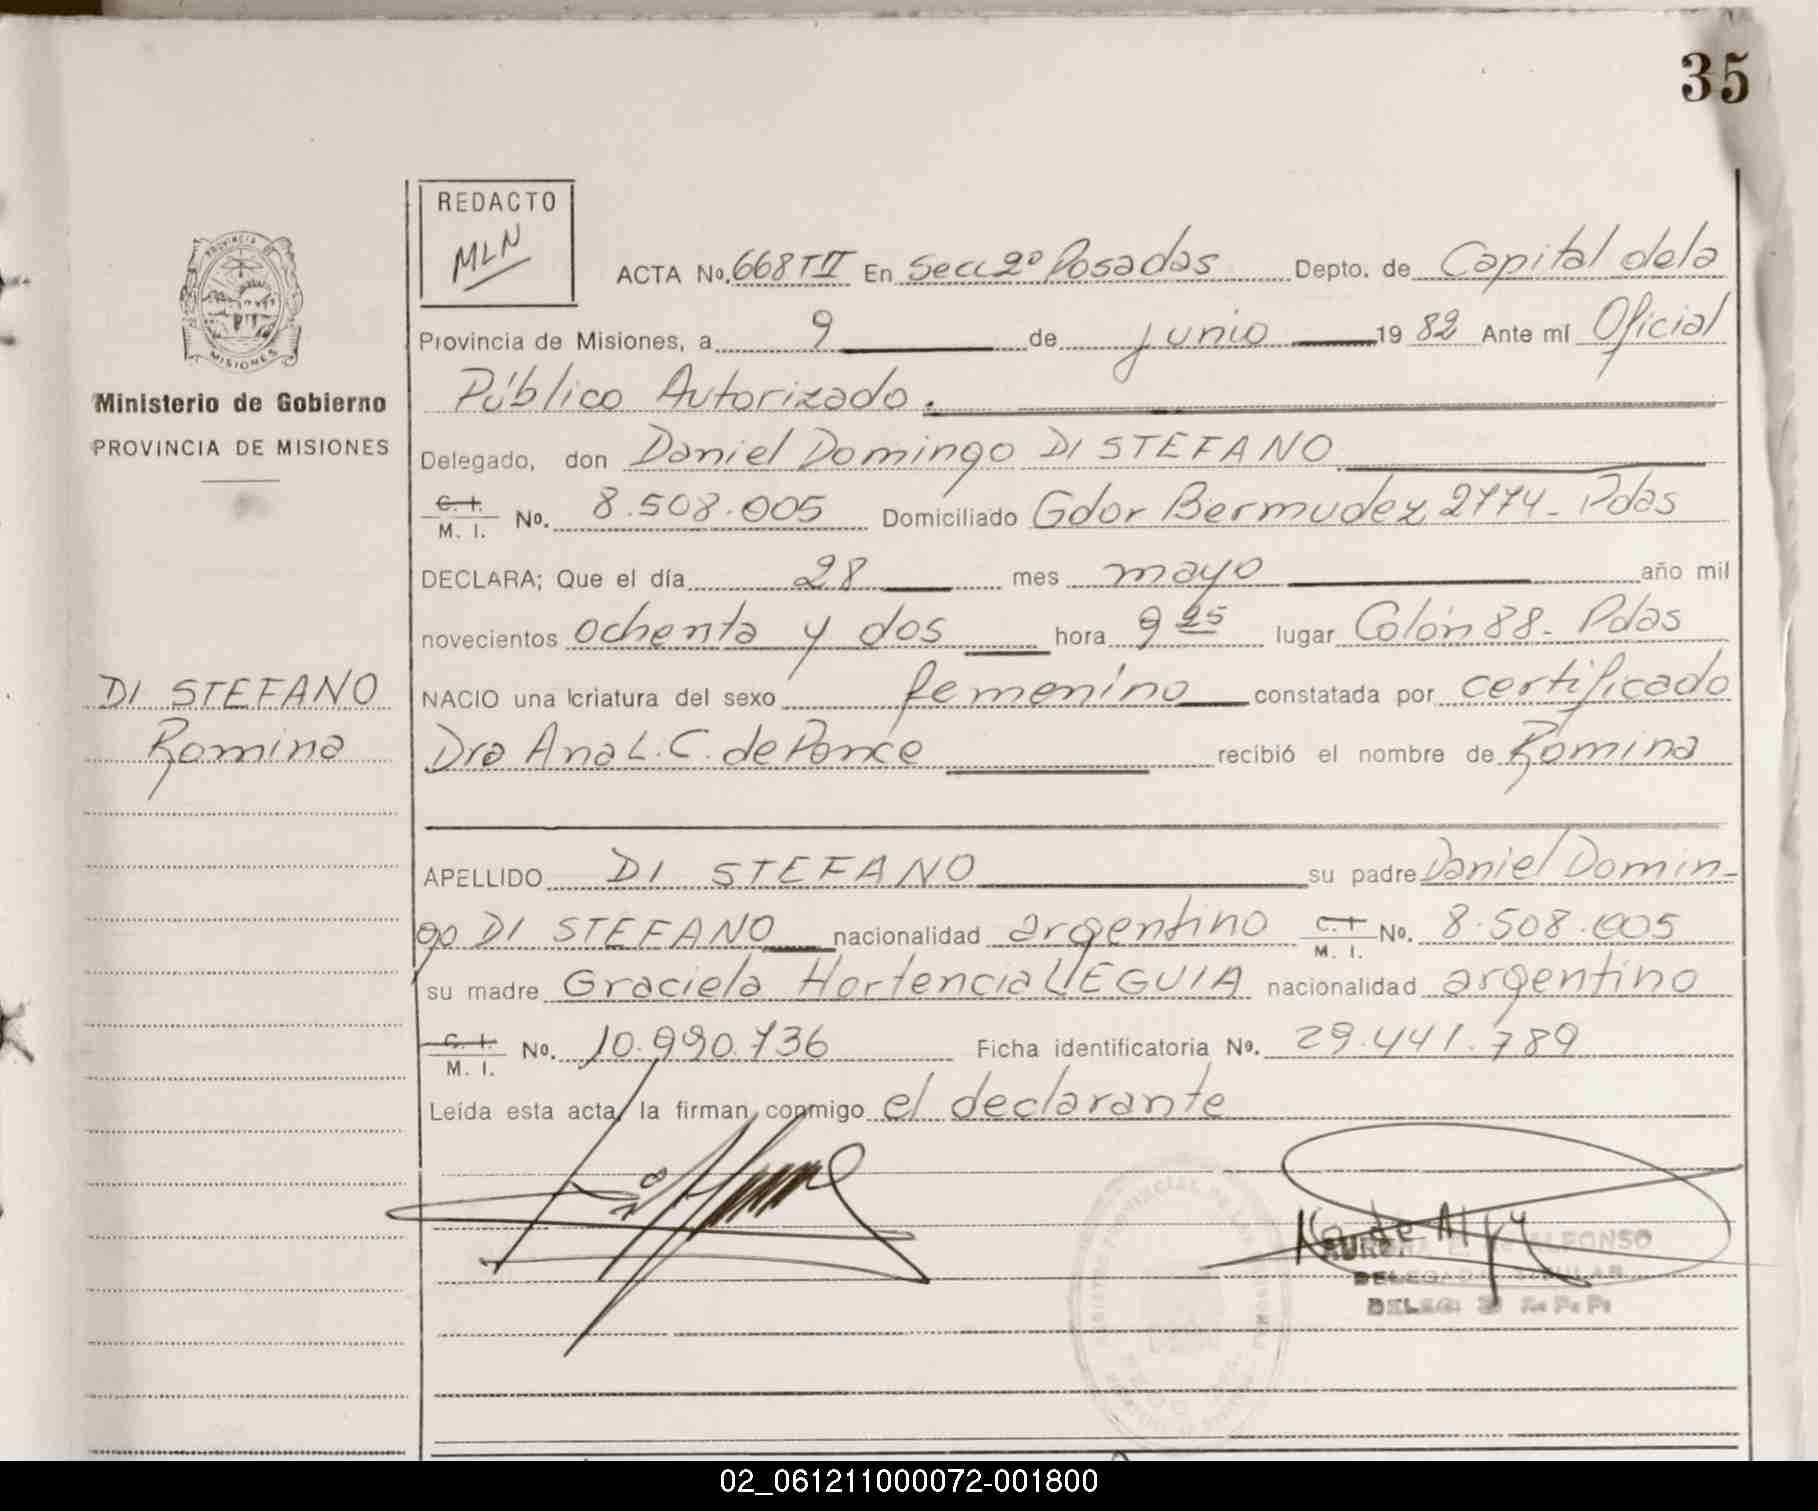 35
REDACTO
MLN
PROVINCIA DE
MISIONES
ACTA No. 668 T II En Secc 2º Posadas Depto. de Capital de la
Provincia de Misiones, a 9 de junio 1982 Ante mí Oficial
Público Autorizado.
Ministerio de Gobierno
PROVINCIA DE MISIONES
Delegado, don Daniel Domingo DI STEFANO
C. I.
M. I. No. 8.508.005 Domiciliado Gdor Bermudez 2774 - Pdas
DECLARA; Que el día 28 mes mayo año mil
novecientos ochenta y dos hora 9 25 lugar Colón 88 - Pdas
DI STEFANO
Romina
NACIO una criatura del sexo femenino constatada por certificado
Dra Ana L. C. de Ponce recibió el nombre de Romina
APELLIDO DI STEFANO su padre Daniel Domin-
go DI STEFANO nacionalidad argentino C. I. M. I. No. 8.508.005
su madre Graciela Hortencia LLEGUIA nacionalidad argentino
C. I.
M. I. No. 10.990.736 Ficha identificatoria No. 29.441.789
Leída esta acta, la firman conmigo el declarante
AURORA ALFONSO
DELEGADA TITULAR
02_061211000072-001800